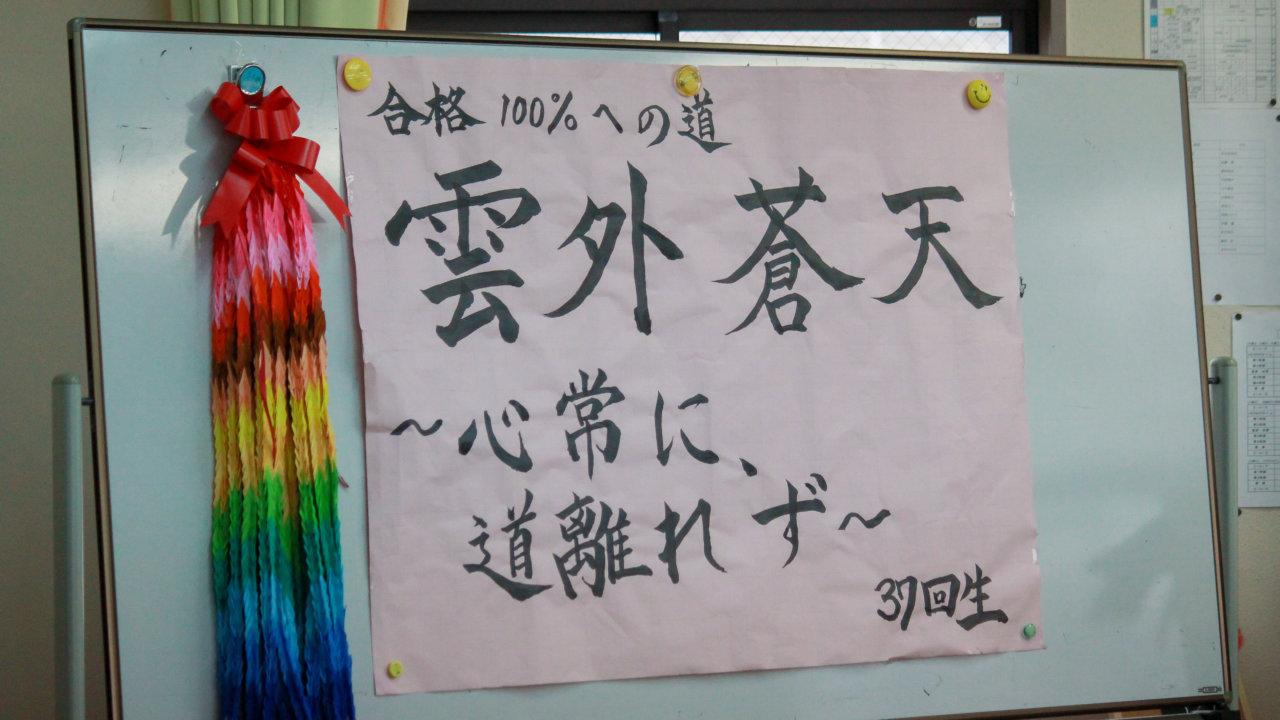 合格100%への道
雲外蒼天
~心常に、
道離れず~
37回生